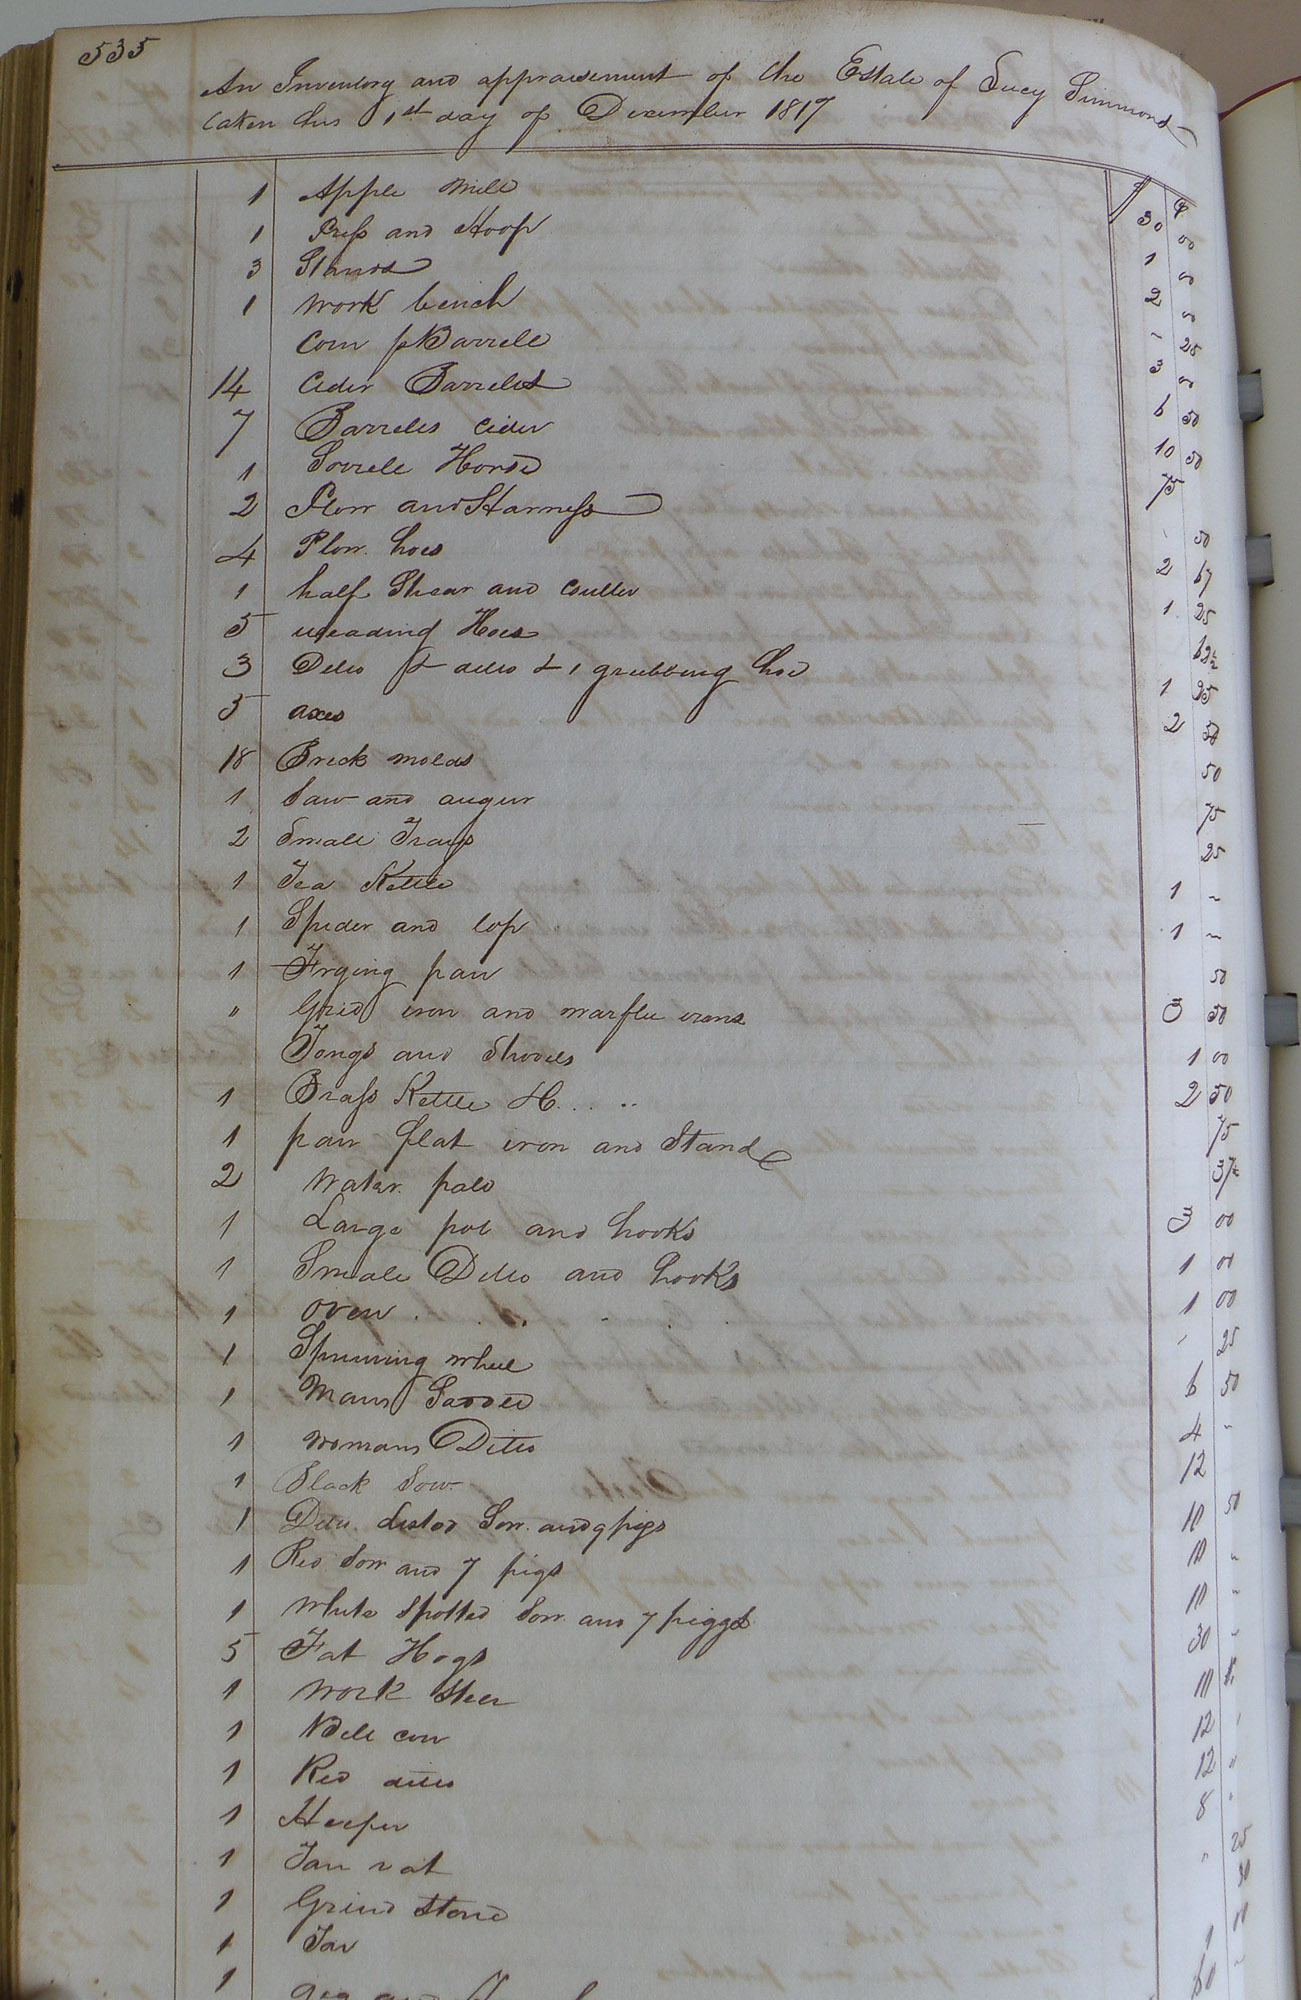 535
An Inventory and appraisement of the Estate of Lucy Simmons
taken this 1st day of December 1817
$ ¢
1 Apple Mill 30 00
1 Press and Hoop 1 00
3 Stands 2 00
1 Work bench - 25
Corn p Barrell 3 00
14 Cider Barrells 6 50
7 Barrells Cider 10 50
1 Sorrell Horse 75
2 Plow and Harness - 50
4 Plow hoes 2 67
1 half Shear and Coulter 1 25
5 weading Hoes 62½
3 Ditto & ditto & 1 grubbing hoe 1 25
5 axes 2 50
18 Brick molds 50
1 Saw and augur 75
2 Small Trays 25
1 Tea Kettle 1 ~
1 Spider and top 1 ~
1 Frying pan 50
" Grid iron and warfle irons 3 50
Tongs and Shovels 1 00
1 Brass Kettle &C. . . .. 2 50
1 pair flat iron and Stand 75
2 Water pales 37½
1 Large pot and hooks 3 00
1 Small Ditto and hooks 1 00
1 Oven . . . . . 1 00
1 Spinning wheel - 25
1 Mans Saddle 6 50
1 Womans Ditto 4 ~
1 Black Sow 12
1 Ditto listed Sow and 9 pigs 10 50
1 Red Sow and 7 pigs 10 "
1 White Spotted Sow and 7 piggs 10 "
5 Fat Hogs 30 "
1 Work Steer 10
1 Bell cow 12 '
1 Red ditto 12 "
1 Heifer 8 '
1 Tan vat " 25
1 Grind Stone 50
1 Jar 10
1 Gig and